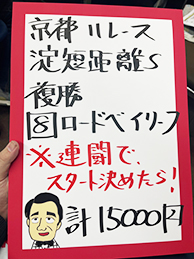 京都11レース
淀短距離S
複勝
⑧ロードベイリーフ
※連闘で、
スタート決めたら!
計15000円